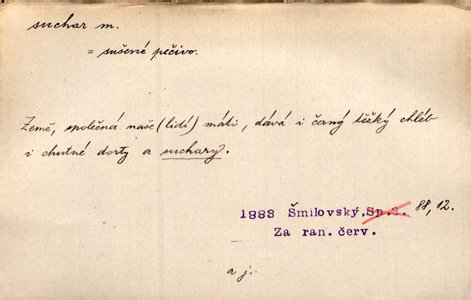 suchar m.
= sušené pečivo.
Země, společná naše (lidí) máti, dává i černý těžký chléb
i chutné dorty a suchary.
1883 Šmilovský, Sp. 88, 12.
Za ran. červ.
a j.